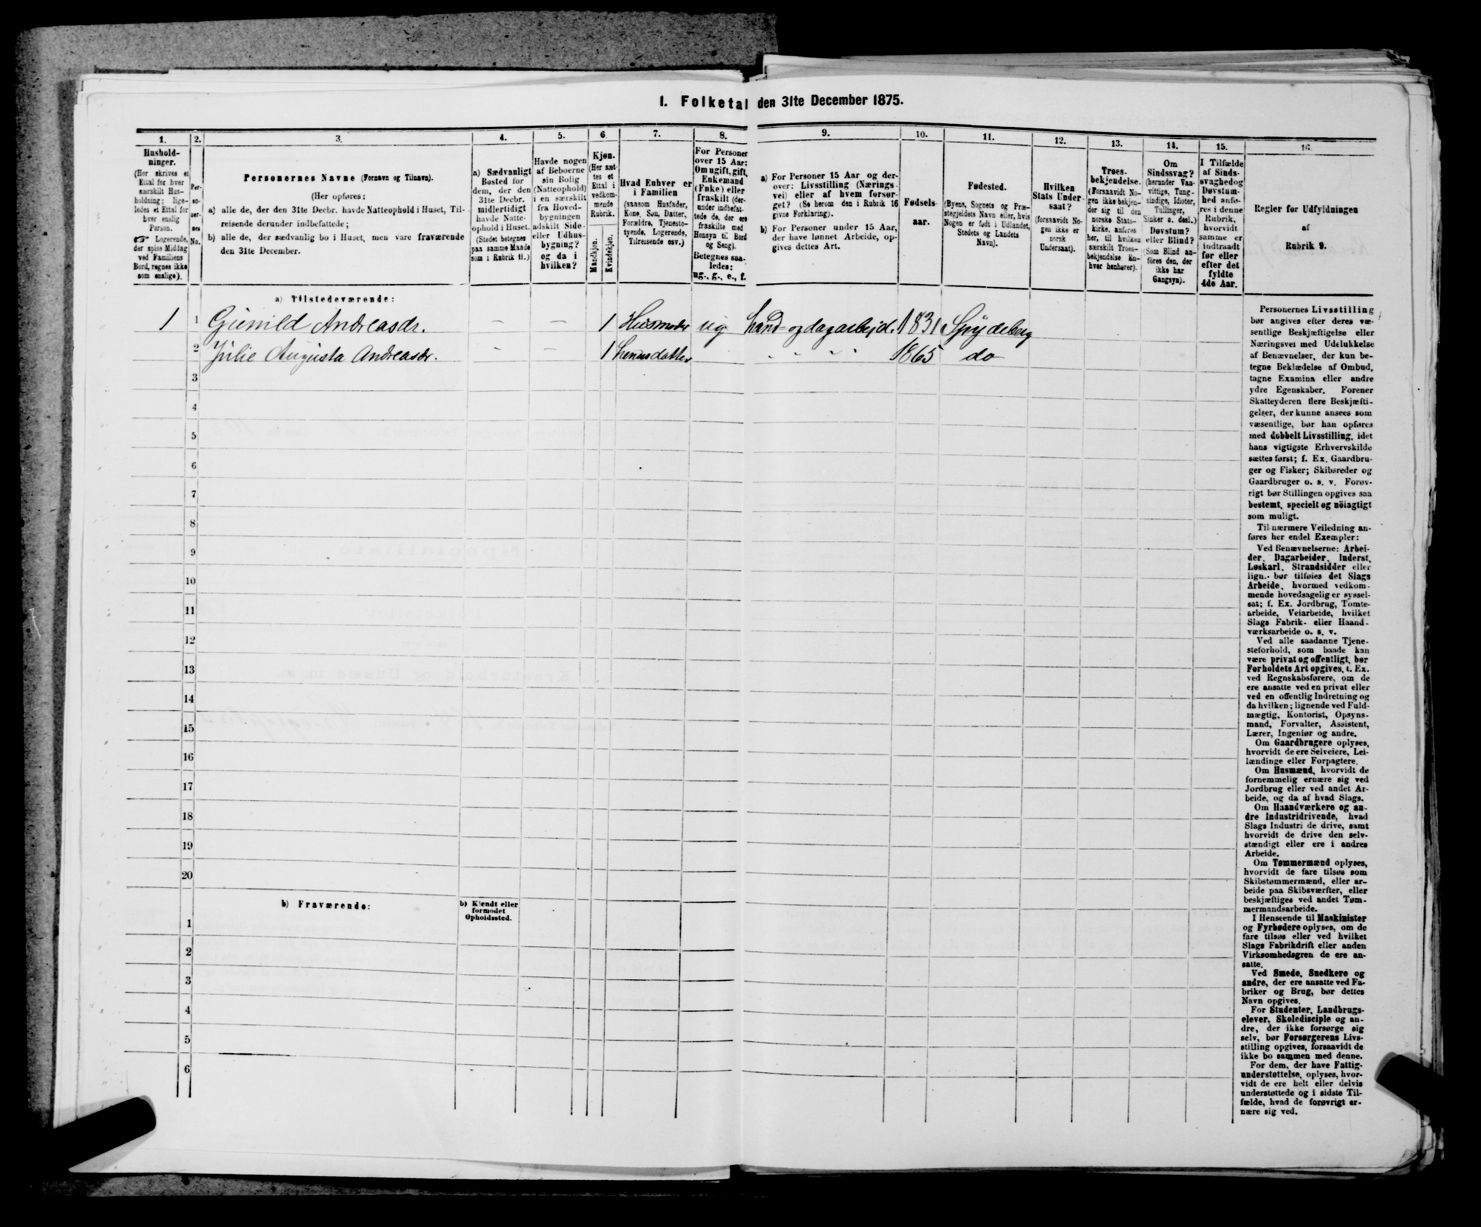 I. Folketal den 31te December 1875.
1. 2. 3. 4. 5. 6. 7. 8. 9. 10. 11. 12. 13. 14. 15. 16.
Hushold-
ninger.
(Her skrives et
Ettal for hver
særskilt Hus-
holdning; lige-
ledes et Ettal for
hver enslig
Person.
☞ Logerende,
der spise Middag
ved Familiens
Bord, regnes ikke
som enslige).
Per-
so-
ner-
nes
No.
Personernes Navne (Fornavn og Tilnavn).
(Her opføres:
a) alle de, der den 31te Decbr. havde Natteophold i Huset, Til-
reisende derunder indbefattede;
b) alle de, der sædvanlig bo i Huset, men vare fraværende
den 31te December.
a) Sædvanligt
Bosted for
dem, der den
31te Decbr.
midlertidigt
havde Natte-
ophold i Huset.
(Stedet betegnes
paa samme Maade
som i Rubrik 11.)
Havde nogen
af Beboerne
sin Bolig
(Natteophold)
i en særskilt
fra Hoved-
bygningen
adskilt Side-
eller Udhus-
bygning?
og da i
hvilken?
Kjøn.
(Her sæt-
tes et
Ettal i
vedkom-
mende
Rubrik.
Mandkjøn.
Kvindekjøn.
Hvad Enhver er
i Familien
(saasom Husfader,
Kone, Søn, Datter,
Forældre, Tjeneste-
tyende, Logerende,
Tilreisende osv.)
For Personer
over 15 Aar:
Om ugift, gift,
Enkemand
(Enke) eller
fraskilt (der-
under indbefat-
tede de, der ere
fraskilte med
Hensyn til Bord
og Seng).
Betegnes saa-
ledes:
ug., g., e., f.
a) For Personer 15 Aar og der-
over: Livsstilling (Nærings-
vei) eller af hvem forsør-
get? (Se herom den i Rubrik 16
givne Forklaring).
b) For Personer under 15 Aar,
der have lønnet Arbeide, op-
gives dettes Art.
Fødsels-
aar.
Fødested.
(Byens, Sognets og Præ-
stegjeldets Navn eller, hvis
Nogen er født i Udlandet,
Stedets og Landets
Navn).
Hvilken
Stats Under-
saat?
(forsaavidt No-
gen ikke er
norsk
Undersaat).
Troes-
bekjendelse.
(Forsaavidt No-
gen ikke bekjen-
der sig til den
norske Stats-
kirke, anføres
her, til hvilken
særskilt Troes-
bekjendelse En-
hver henhører).
Om
Sindssvag?
(herunder Van-
vittige, Tung-
sindige, Idioter,
Tullinger,
Sinker o. desl.)
Døvstum?
eller Blind?
(Som Blind an-
føres den, der
ikke har
Gangsyn).
I Tilfælde
af Sinds-
svaghed og
Døvstum-
hed anfø-
res i denne
Rubrik,
hvorvidt
samme er
indtraadt
før eller
efter det
fyldte
4de Aar.
Regler for Udfyldningen
af
Rubrik 9.
a) Tilstedeværende:
1 1 Gunild Andreasdr. - - 1 Husmoder ug Haand- og dagarbejd. 1831 Spydeberg
2 Julie Augusta Andreasdr. - - 1 hennes datter " " " " 1865 do
3
4
5
6
7
8
9
10
11
12
13
14
15
16
17
18
19
20
b) Fraværende:
b) Kjendt eller
formodet
Opholdssted.
1
2
3
4
5
6
Personernes Livsstilling
bør angives efter deres væ-
sentlige Beskjæftigelse eller
Næringsvei med Udelukkelse
af Benævnelser, der kun be-
tegne Beklædelse af Ombud,
tagne Examina eller andre
ydre Egenskaber. Forener
Skatteyderen flere Beskjæfti-
gelser, der kunne ansees som
væsentlige, bør han opføres
med dobbelt Livsstilling, idet
hans vigtigste Erhvervskilde
sættes først; f. Ex. Gaardbru-
ger og Fisker; Skibsreder og
Gaardbruger o. s. v. Forøv-
rigt bør Stillingen opgives saa
bestemt, specielt og nøiagtigt
som muligt.
Til nærmere Veiledning an-
føres her endel Exempler:
Ved Benævnelserne: Arbei-
der, Dagarbeider, Inderst,
Løskarl, Strandsidder eller
lign. bør tilføies det Slags
Arbeide, hvormed vedkom-
mende hovedsagelig er syssel-
sat; f. Ex. Jordbrug, Tomte-
arbeide, Veiarbeide, hvilket
Slags Fabrik- eller Haand-
værksarbeide o. s. v.
Ved alle saadanne Tjene-
steforhold, som baade kan
være privat og offentligt, bør
Forholdets Art opgives, t. Ex.
ved Regnskabsførere, om de
ere ansatte ved en privat eller
ved en offentlig Indretning og
da hvilken; lignende ved Fuld-
mægtig, Kontorist, Opsyns-
mand, Forvalter, Assistent,
Lærer, Ingeniør og andre.
Om Gaardbrugere oplyses,
hvorvidt de ere Selveiere, Lei-
lændinge eller Forpagtere.
Om Husmænd, hvorvidt de
fornemmelig ernære sig ved
Jordbrug eller ved andet Ar-
beide, og da af hvad Slags.
Om Haandværkere og an-
dre Industridrivende, hvad
Slags Industri de drive, samt
hvorvidt de drive den selv-
stændigt eller ere i andres
Arbeide.
Om Tømmermænd oplyses,
hvorvidt de fare tilsøs som
Skibstømmermænd, eller ar-
beide paa Skibsværfter, eller
beskjæftiges ved andet Tøm-
mermandsarbeide.
I Henseende til Maskinister
og Fyrbødere oplyses, om de
fare tilsøs eller ved hvilket
Slags Fabrikdrift eller anden
Virksomhedsgren de ere an-
satte.
Ved Smede, Snedkere og
andre, der ere ansatte ved Fa-
briker og Brug, bør dettes
Navn opgives.
For Studenter, Landbrugs-
elever, Skoledisciple og an-
dre, der ikke forsørge sig
selv, bør Forsørgerens Livs-
stilling opgives, forsaavidt de
ikke bo sammen med denne.
For dem, der have Fattig-
understøttelse, oplyses, hvor-
vidt de ere helt eller delvis
understøttede og i sidste Til-
fælde, hvad de forøvrigt er-
nære sig ved.